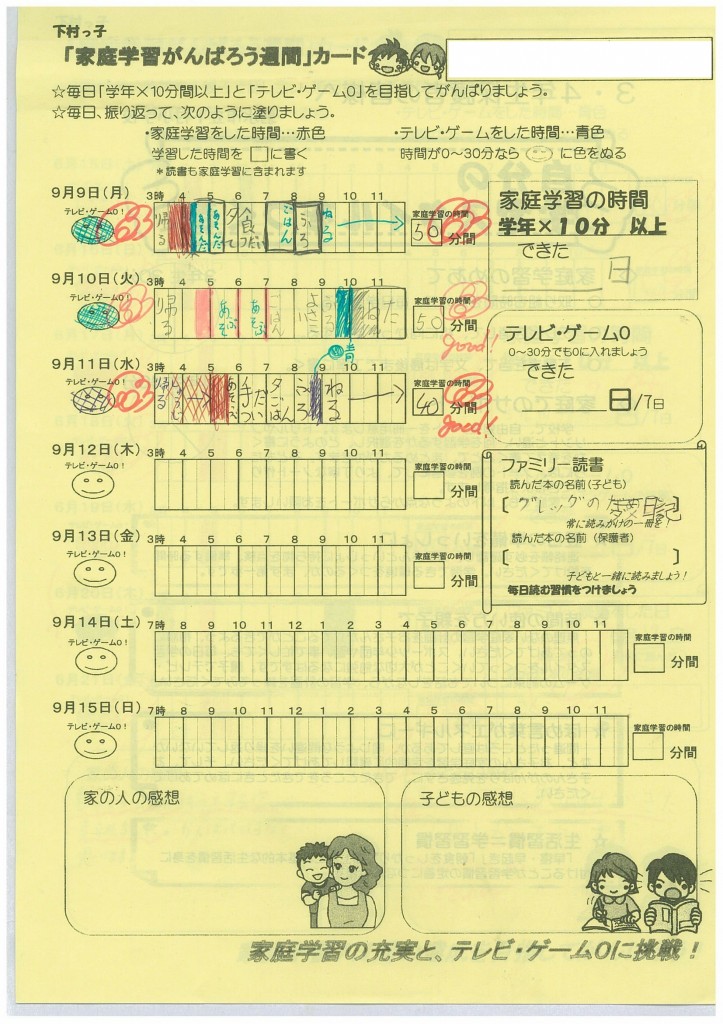 下村っ子
「家庭学習がんばろう週間」カード
☆毎日「学年×10分間以上」と「テレビ・ゲーム0」を目指してがんばりましょう。
☆毎日、振り返って、次のように塗りましょう。
・家庭学習をした時間…赤色 ・テレビ・ゲームをした時間…青色
学習した時間を □に書く 時間が0～30分なら に色をぬる
*読書も家庭学習に含まれます
9月9日(月) 3時 4 5 6 7 8 9 10 11
テレビ・ゲーム0! 家庭学習の時間
帰る あそんだ あそんだ 夕食てつだい ごはん ふろ ねる
50 分間
9月10日(火) 3時 4 5 6 7 8 9 10 11
テレビ・ゲーム0! 家庭学習の時間
帰る あそぶ あそぶ ごはん よさこい ねた
50 分間
good!
青
9月11日(水) 3時 4 5 6 7 8 9 10 11
テレビ・ゲーム0! 家庭学習の時間
帰る あそぶ 手つだい 夕ごはん ふろ ねる
40 分間
good!
9月12日(木) 3時 4 5 6 7 8 9 10 11
テレビ・ゲーム0! 家庭学習の時間
分間
9月13日(金) 3時 4 5 6 7 8 9 10 11
テレビ・ゲーム0! 家庭学習の時間
分間
9月14日(土) 7時 8 9 10 11 12 1 2 3 4 5 6 7 8 9 10 11
テレビ・ゲーム0! 家庭学習の時間
分間
9月15日(日) 7時 8 9 10 11 12 1 2 3 4 5 6 7 8 9 10 11
テレビ・ゲーム0! 家庭学習の時間
分間
家庭学習の時間
学年×10分 以上
できた
日
テレビ・ゲーム0
0～30分でも0に入れましょう
できた
日/7日
ファミリー読書
読んだ本の名前(子ども)
[グレッグのダメ日記]
常に読みかけの一冊を!
読んだ本の名前(保護者)
[ ]
子どもと一緒に読みましょう!
毎日読む習慣をつけましょう
家の人の感想
子どもの感想
家庭学習の充実と、テレビ・ゲーム0に挑戦!